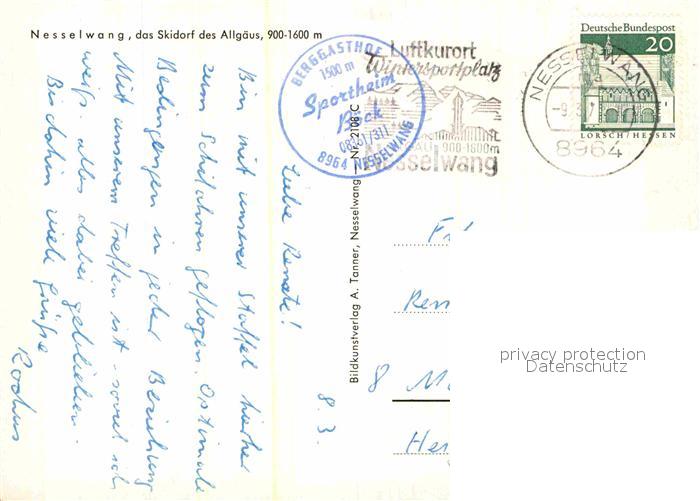 Nesselwang, das Skidorf des Allgäus, 900-1600 m
8.3.
Liebe Renate!
Bin mit unserer Staffel hierher
zum Schifahren geflogen. Optimale
Bedingungen in jeder Beziehung
Mit unserem Treffen ist - soviel ich
weiß - alles dabei geblieben.
Bis dahin viele Grüße
Rochus
Bildkunstverlag A. Tanner, Nesselwang - Nr. 2108 C
BERGGASTHOF
1500 m
Sportheim
Böck
08361/311
8964 NESSELWANG
Luftkurort
Wintersportplatz
900-1600m
Nesselwang
NESSELWANG
8964
Deutsche Bundespost
20
LORSCH/HESSEN
8
privacy protection
Datenschutz